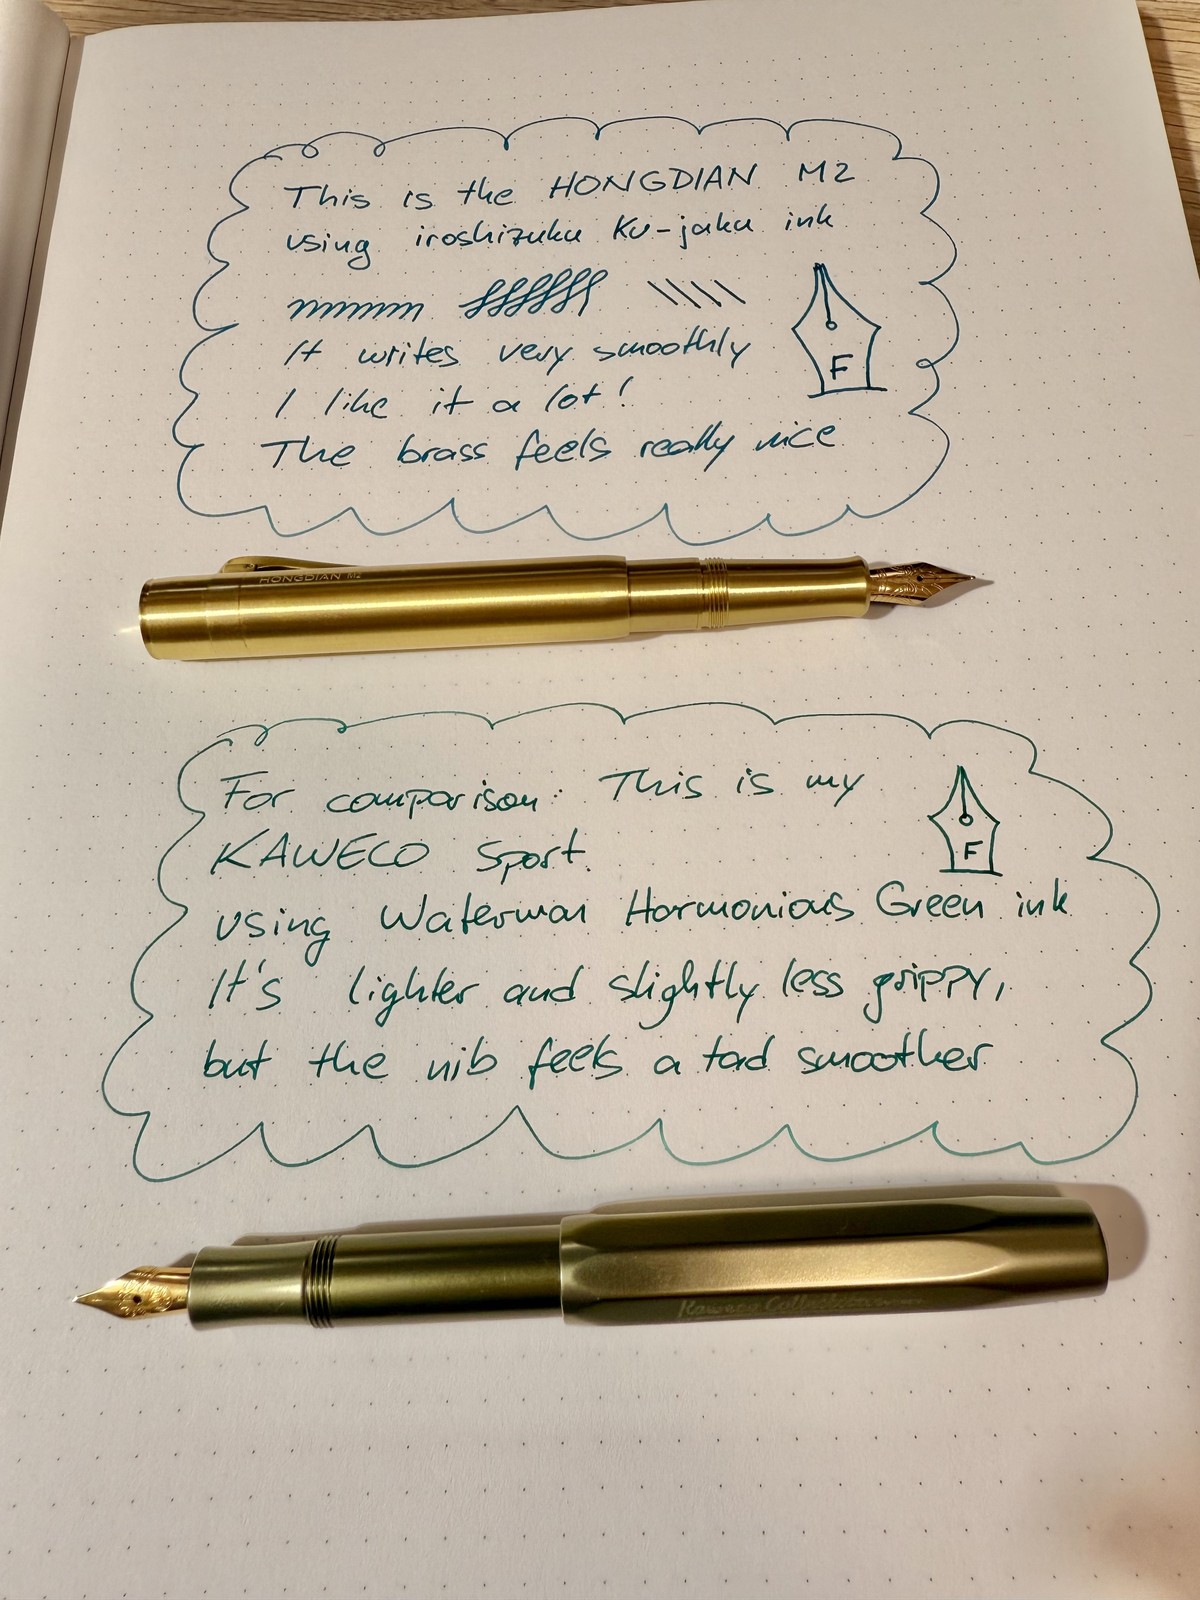 This is the HONGDIAN M2
using iroshizuku Ku-jaku ink
It writes very smoothly
F
I like it a lot!
The brass feels really nice
HONGDIAN M2
For comparison: This is my
KAWECO Sport.
F
using Waterman Harmonious Green ink
It's lighter and slightly less grippy,
but the nib feels a tad smoother
Kaweco Collection